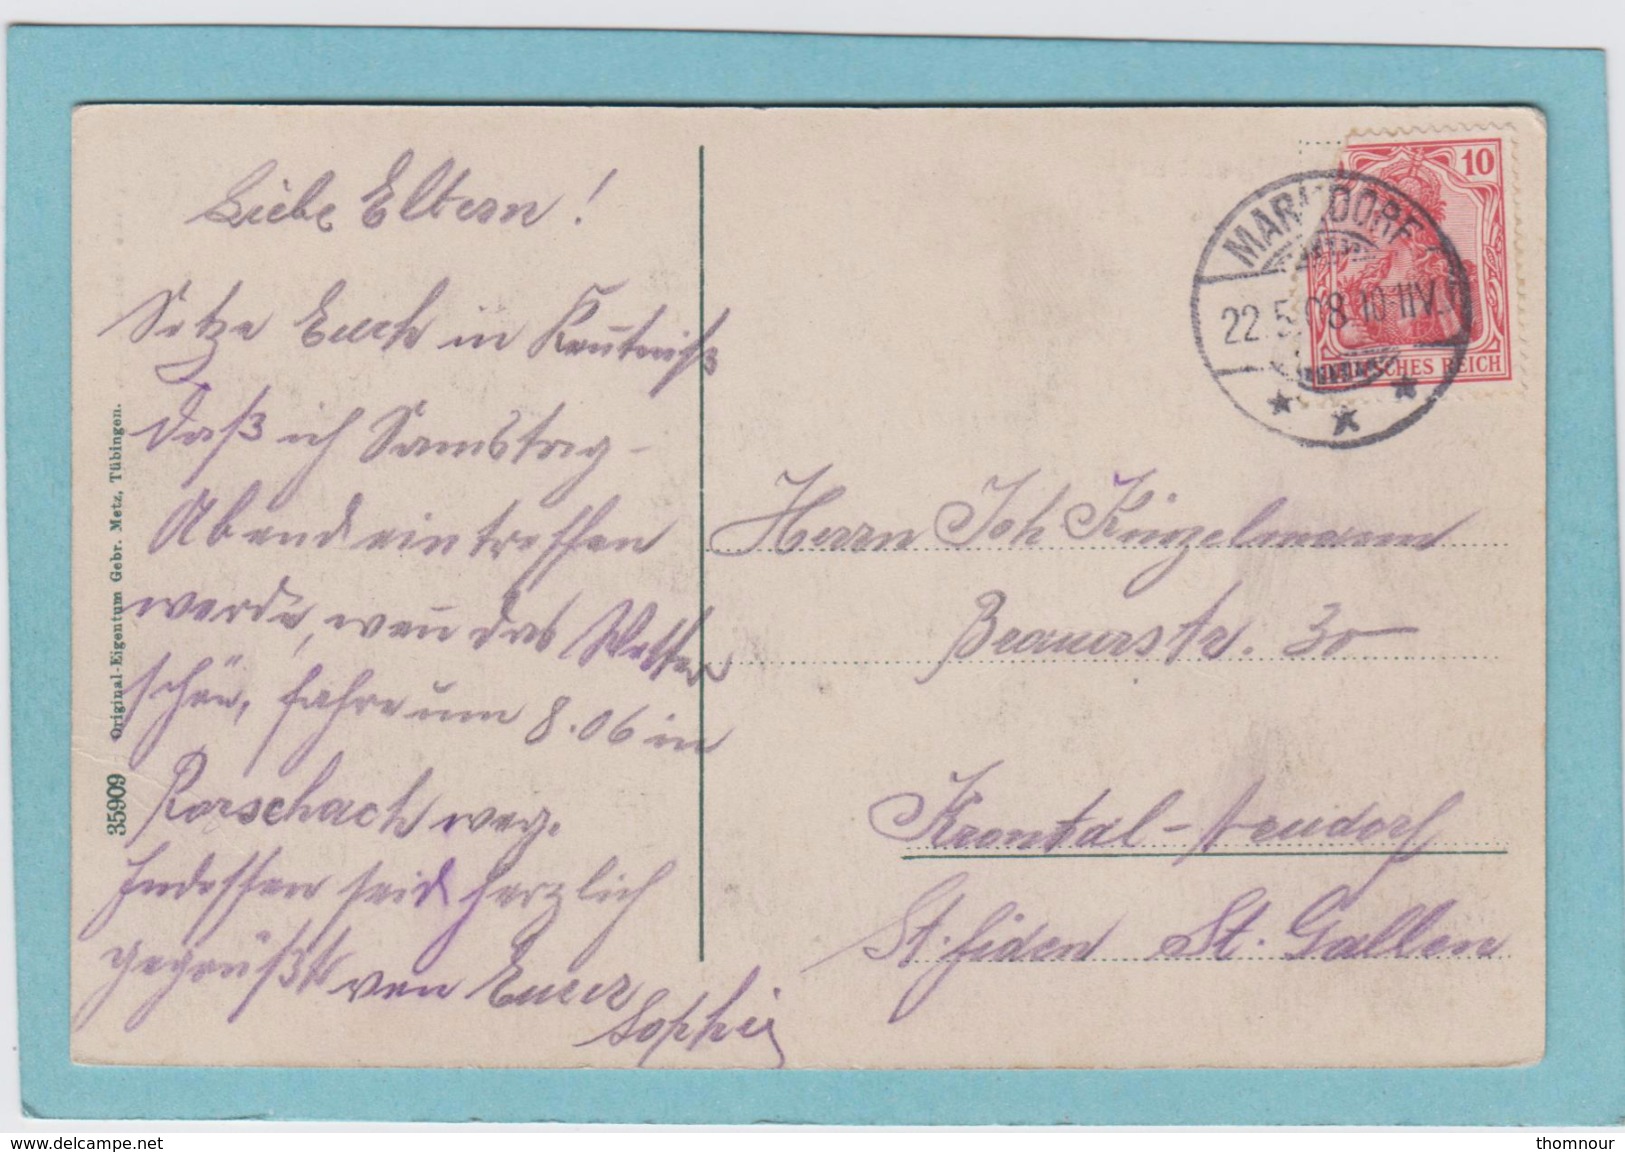 Liebe Eltern!
Setze Euch in Keñtniß
daß ich Samstag-
Abend eintreffen
werde, weñ das Wetter
schön, fahre um 8.06 in
Rorschach weg.
Indessen seid herzlich
gegrüßt von Eurer
Sophie
35909 Original-Eigentum Gebr. Metz, Tübingen.
10
DEUTSCHES REICH
MARKDORF
22.5.08.10-11V.
Herrn Joh. Künzelmann
Brauerstr. 30
Krontal-Neudorf
St. Fiden St. Gallen
www.delcampe.net
thomnour